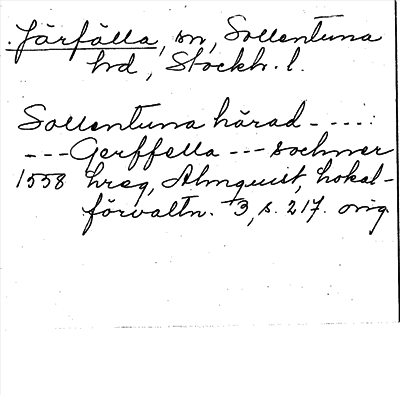 Järfälla, sn, Sollentuna
hd, Stockh. l.
Sollentuna härad - - - - :
- - - Gerffella - - - sochner
1558 hreg, Almquist, Lokal-
förvaltn. 3, s. 217. orig